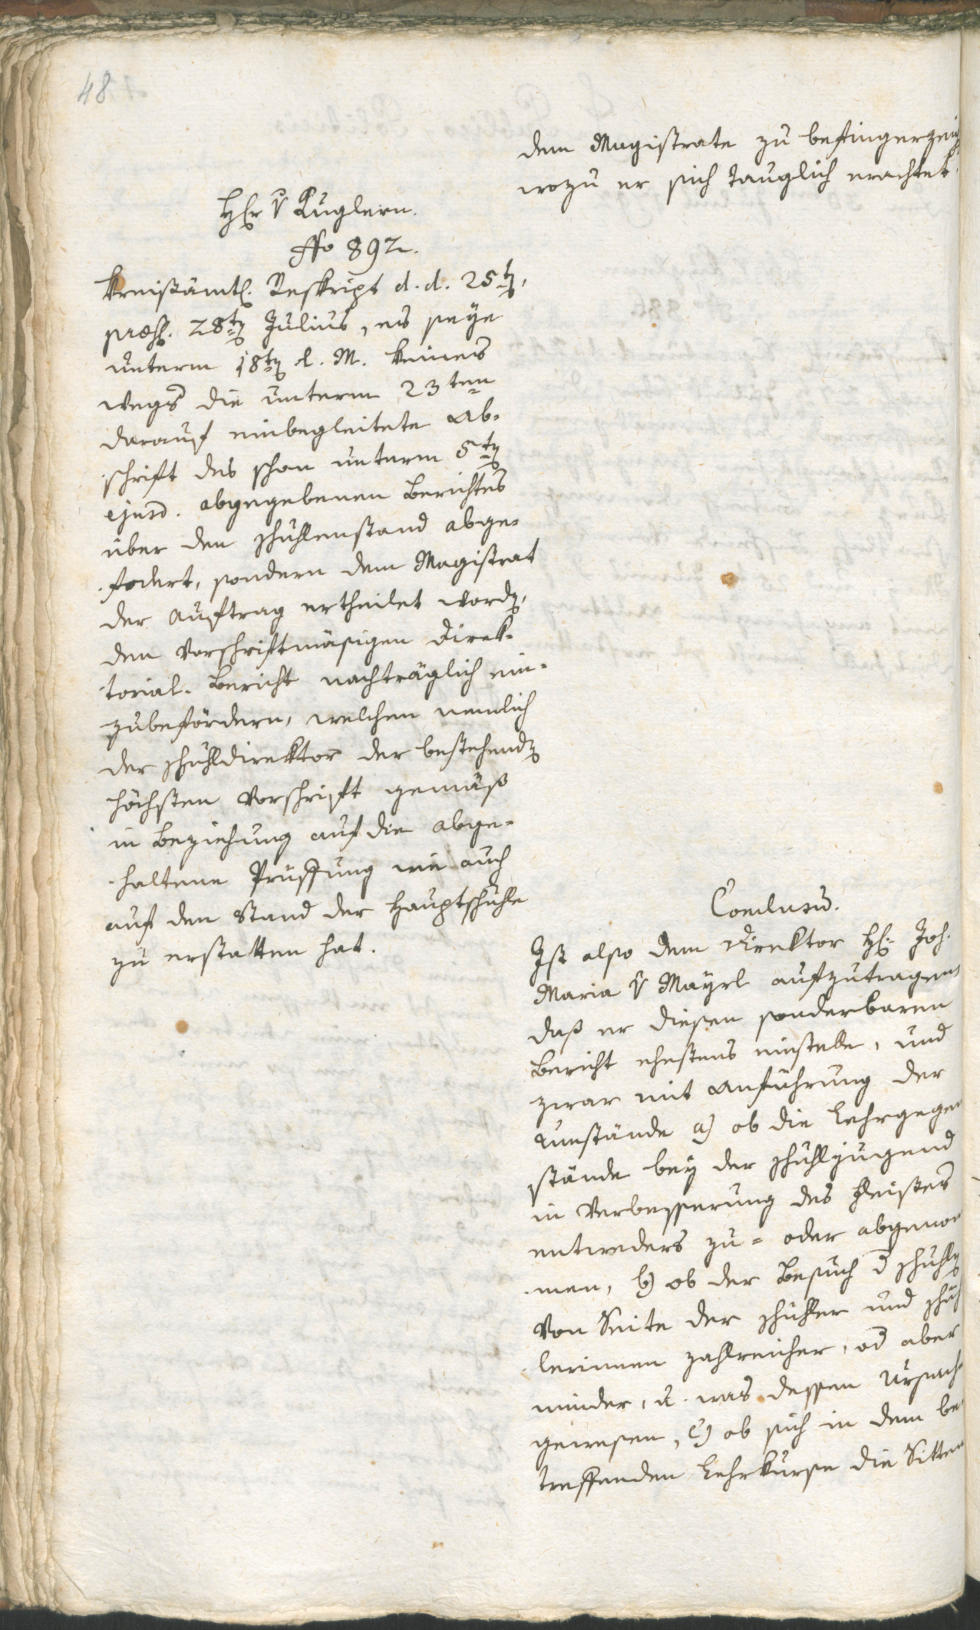 48.
dem Magistrate zu befingerzeig
wozu er sich tauglich erachtet.
Hr v Kuglern.
No 892.
Kreisämtl. Reskript d. d. 25t,
præs. 28t Julius, es seye
unterm 18t d. M. keines
wegs die unterm 23ten
darauf einbegleitete Ab-
schrift des schon unterm 5t
ejusd. abgegebenen Berichtes
über den Schulenstand abge-
fodert, sondern dem Magistrat
der Auftrag ertheilet word,
den vorschriftmäsigen Direk-
torial-Bericht nachträglich ein-
zubefördern, welchen nemlich
der Schuldirektor der bestehend
höchsten Vorschrift gemäß
in Beziehung auf die abge-
haltene Prüffung wie auch
auf den Stand der Hauptschule
zu erstatten hat.
Conclusu.
Ist also dem Direktor H: Joh.
Maria v Mayrl aufzutragen
daß er diesen sonderbaren
Bericht ehestens einstelle, und
zwar mit Anführung der
Umstände a) ob die Lehrgegen
stände bey der Schuljugend
in Verbesserung des Fleißes
entweders zu- oder abgenom
men, b) ob der Besuch d Schul
von Seite der Schuller und Schul
lerinnen zahlreicher, od aber
minder, u. was dessen Ursach
gewesen, c) ob sich in dem be
treffenden Lehrkurse die Sitten